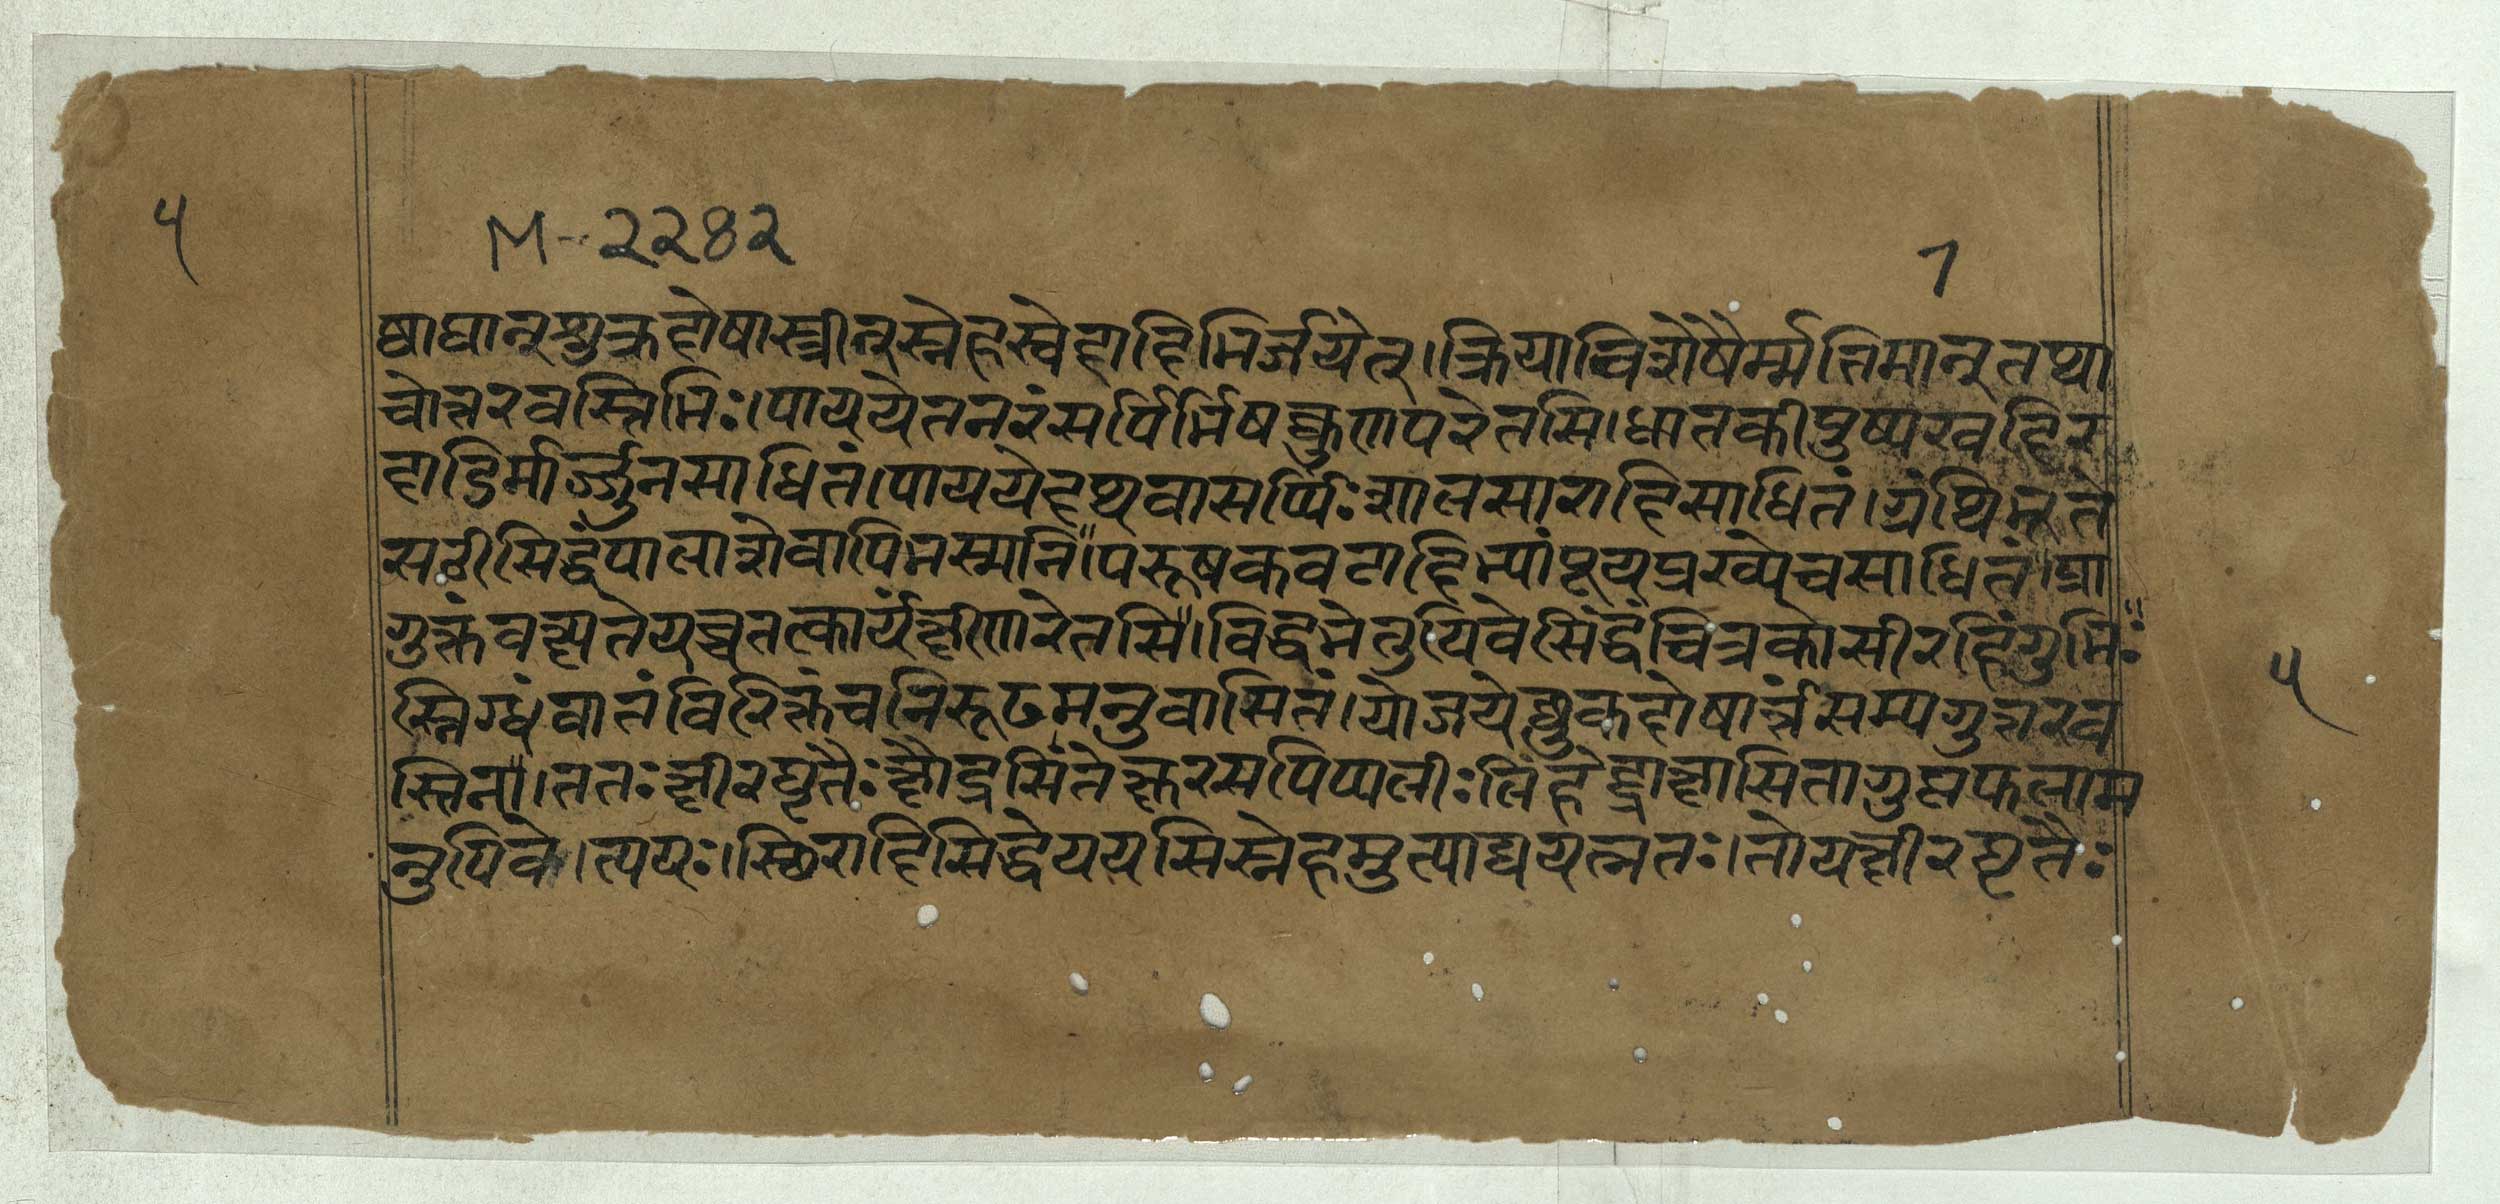 ५
M-२२४२
7
ष्वाद्यान्शुक्रदोषांस्त्रीन्स्नेहस्वेदादिभिर्जयेत्।क्रियाविशेषैर्म्मतिमान्तथा
चोत्तरवस्तिभिः।पाययेतनरंसर्पिर्भिषक्कुणपरेतसि।धातकीपुष्पखदिर
दाडिमार्ज्जुनसाधितं।पाययेदथवासर्प्पिःशालसारादिसाधितं।ग्रंथिभूते
सठीसिद्धंपालाशेवापिभस्मनि॥परूषकवटादिभ्यांपूयप्रख्येचसाधितं।प्रा
गुक्तंवक्ष्यतेयच्चतत्कार्यंक्षीणरेतसि॥विट्प्रभेतुपिवेत्सिद्धंचित्रकोसीरहिंगुभिः॥
स्निग्धंवान्तंविरिक्तंचनिरूढमनुवासितं।योजयेछुक्रदोषार्त्तंसम्यगुत्तरव
स्तिना॥ततःक्षीरघृतैःक्षौद्रसितेक्षुरसपिप्पलीःलिहेद्द्राक्षासितागुप्तफलाम
नुपिवे।त्पयः।स्थिरादिसिद्धेपयसिस्नेहमुत्पाद्ययत्नतः।तोयक्षीरघृतैः
५